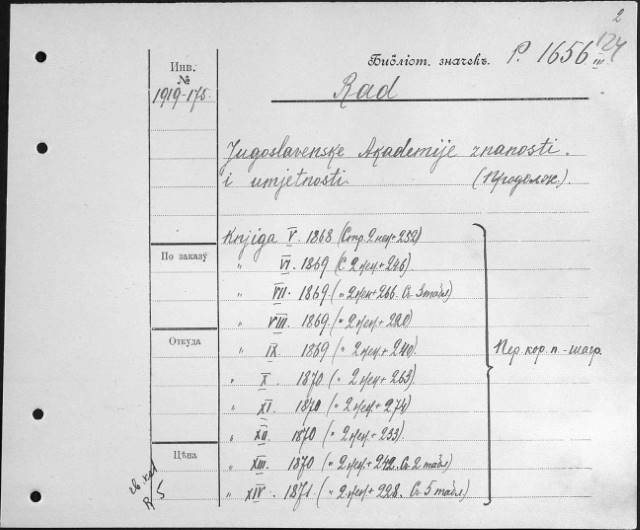 2
Инв.
№
1919-175.
Библіот. значекъ. P. 1656 124
III
Rad
Jugoslavenske Akademije znanosti
i umjetnosti (Продолж.)
Knjiga V. 1868 (Стр. 2 нен+232)
По заказу
" VI. 1869 (С 2 нен+246).
" VII. 1869 (" 2 нен+266. Съ 3 табл)
" VIII. 1869 (" 2 нен+220)
Откуда
" IX. 1869 (" 2 нен+240)
Пер. кор. п.-шагр.
" X. 1870 (" 2 нен+263).
" XI. 1870 (" 2 нен+274)
" XII. 1870 (" 2 нен+233).
Цѣна
" XIII. 1870 (" 2 нен+242. Съ 2 табл)
" XIV. 1871 (" 2 нен+228. Съ 5 табл)
R 5